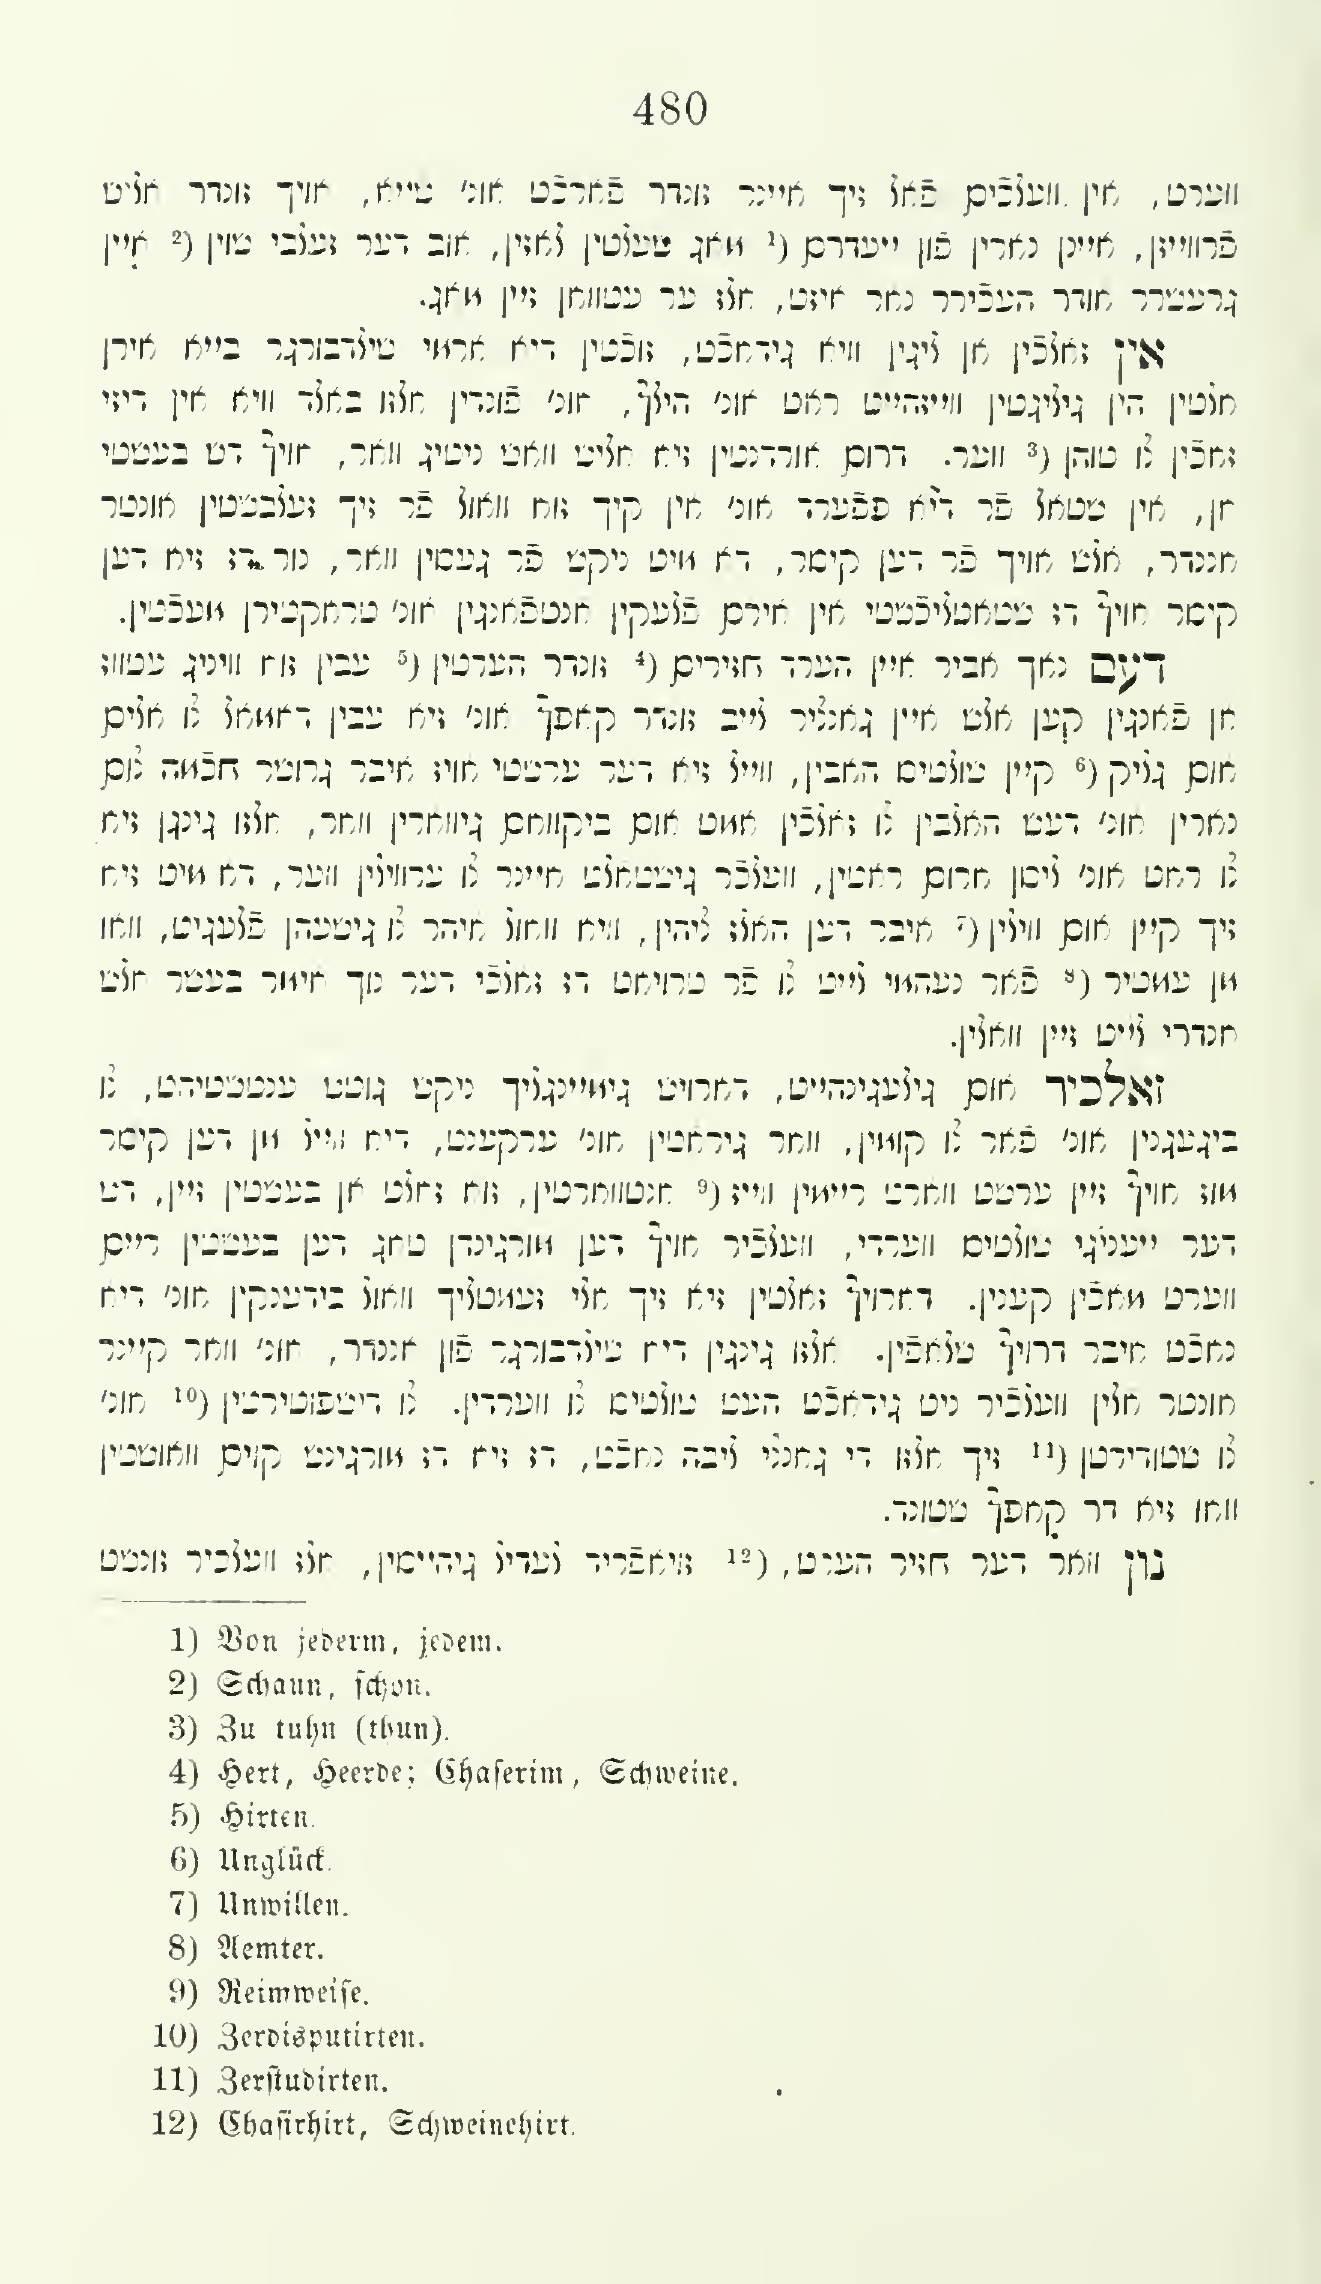 480
ווערט, אין וועלכֿים פֿאל זיך איינר זונדר פֿארכֿט אונ׳ שייא, אויך זונדר אליט
פֿרווייזן, איינן נארין פֿון ייעדרם (¹ מאג שעלטין לאזין, אוב דער זעלבי שוין (² איין
גרעשרר אודר העכֿירר נאר איזט, אלז ער עטוואן זיין מאג.
אין זאלכֿין אן ליגין וויא גידאכֿט, זוכֿטין דיא ארמי שילדבורגר בייא אירן
אלטין הין גיליגטין ווייזהייט ראט אונ׳ הילף, אונ׳ פֿונדין אלזו באלד וויא אין דיזי
זאכֿין לו טוהן (³ ווער. דרום אורדנטין זיא אליש וואש ניטיג וואר, אויף דש בעשטי
אן, אין שטאל פֿר דיא פפֿערד אונ׳ אין קיך זוא וואול פֿר זיך זעלבשטין אונטר
אננדר, אלש אויך פֿר דען קיסר, דא מיט ניקש פֿר געסין וואר, נור דז זיא דען
קיסר אויף דז שטאטליכֿשטי אין אירם פֿלעקין אנטפֿאנגין אונ׳ טראקטירן מעכֿטין.
דעם נאך אביר איין הערד חזירים (⁴ זונדר הערטין (⁵ עבין זוא וויניג עטווז
אן פֿאנגין קען אלש איין גאנליר לייב זונדר קאפף אונ׳ זיא עבין דאמאל לו אלים
אום גליק (⁶ קיין שולטים האבין, ווייל זיא דער ערשטי אויז איבר גרושר חכֿמה לום
נארין אונ׳ דעש האלבין לו זאלכֿין אמט אום ביקוואם גיווארין וואר, אלזו גינגן זיא
לו ראט אונ׳ ליסן ארום ראטין, וועלכֿר גישטאלט איינר לו ערווילין ווער, דא מיט זיא
זיך קיין אום ווילין (⁷ איבר דען האלז ליהין, וויא וואול איהר לו גישעהן פֿלעגיט, וואו
מן עמטיר (⁸ פֿאר נעהמי לייט לו פֿר טרויאט דז זאלכֿי דער נוך אימר בעשר אלש
אנדרי לייט זיין וואלין.
זאלכיר אום גילעגינהייט, דארויש גימיינגליך ניקש גוטש ענטשטיהט, לו
ביגעגנין אונ׳ פֿאר לו קומין, וואר גיראטין אונ׳ ערקענט, דיא ווייל מן דען קיסר
מוז אויף זיין ערשט ווארט ריימין ווייז (⁹ אנטווארטין, זוא זאלט אן בעשטין זיין, דש
דער ייעניגי שולטיס ווערדי, וועלכֿיר אויף דען מורגינדן טאג דען בעשטין ריים
ווערט מאכֿין קענין. דארויף זאלטין זיא זיך אלי זעמטליך וואול בידענקין אונ׳ דיא
נאכֿט איבר דרויף שלאפֿין. אלזו גינגין דיא שילדבורגר פֿון אננדר, אונ׳ וואר קיינר
אונטר אלין וועלכֿיר ניט גידאכֿט העט שולטיס לו ווערדין. לו דישפוטירטין (¹⁰ אונ׳
לו שטודירטן (¹¹ זיך אלזו די גאנלי ליבה נאכֿט, דז זיא דז מורגינש קוים וואוסטין
וואו זיא דר קאפף שטונד.
נון וואר דער חזיר הערט, (¹² זיאפֿריד לעדיל גיהייסין, אלז וועלכיר זונשט
1) Von jederm, jedem.
2) Schaun, schon.
3) Zu tuhn (thun).
4) Hert, Heerde; Chaserim, Schweine.
5) Hirten.
6) Unglück.
7) Unwillen.
8) Aemter.
9) Reimweise.
10) Zerdisputirten.
11) Zerstudirten.
12) Chasirhirt, Schweinehirt.